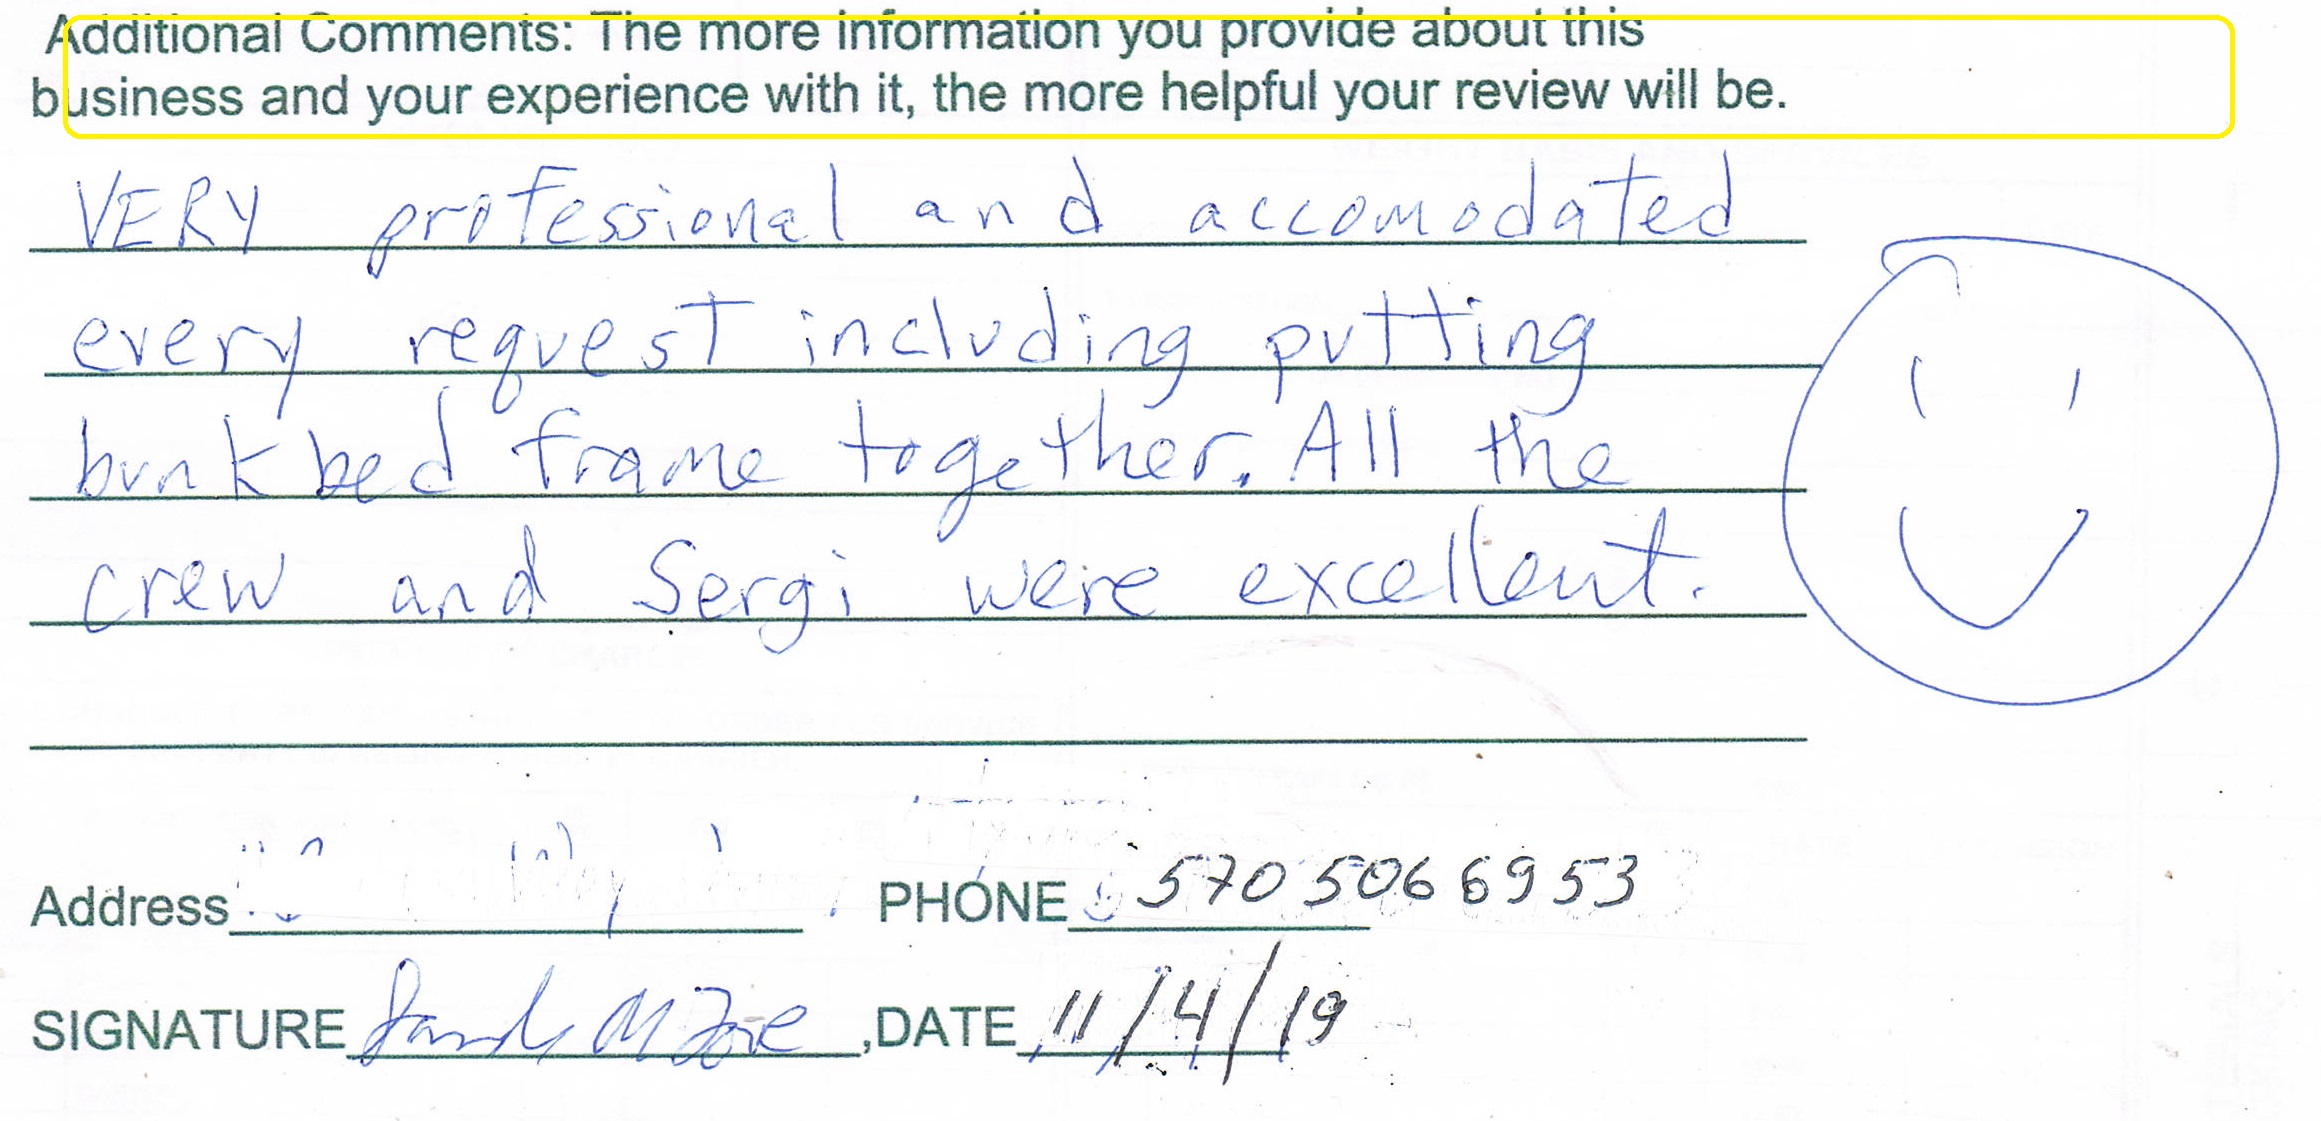 Additional Comments: The more information you provide about this
business and your experience with it, the more helpful your review will be.
VERY professional and accomodated
every request including putting
bunkbed frame together. All the
crew and Sergi were excellent.
Address PHONE 570 506 6953
SIGNATURE ,DATE 11/4/19